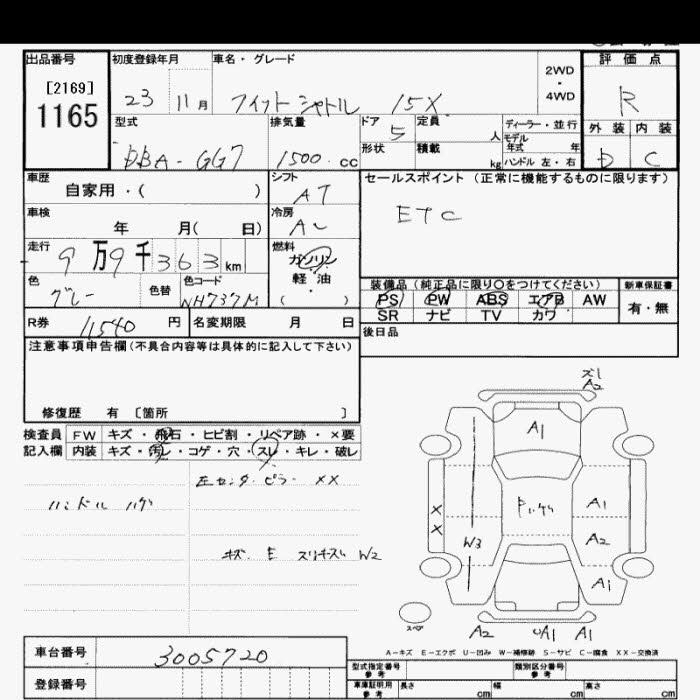 出品番号 初度登録年月 車名・グレード 評価点
[2169]
1165
23 11月 フィットシャトル 15X 2WD・4WD R
型式 排気量 ドア 定員 ディーラー・並行 外装 内装
DBA-GG7 1500 cc 5 人 モデル年式 年 D C
形状 積載 kg ハンドル 左・右
車歴 シフト セールスポイント(正常に機能するものに限ります)
自家用・( ) AT ETC
車検 冷房
年 月( 日) AC
走行 燃料
9万9千363km ガソリン
軽・油
・
( )
色 色替 色コード 装備品(純正品に限り○をつけてください) 新車保証書
グレー NH737M PS PW ABS エアB AW 有・無
SR ナビ TV カワ
R券 11540 円 名変期限 月 日 後日品
注意事項申告欄(不具合内容等は具体的に記入して下さい)
修復歴 有 [箇所 ]
検査員 FW キズ・飛石・ヒビ割・リペア跡・×要
記入欄 内装 キズ・汚レ・コゲ・穴・スレ・キレ・破レ
左センターピラー XX
ハンドル ハゲ
キズ E スリキズ W2
ズレ
A2
A1
A1
XX
A2
W3
A1
スペア
A2 UA1 A1
A-キズ E-エクボ U-凹み W-補修跡 S-サビ C-腐食 XX-交換済
車台番号 3005720
登録番号
型式指定番号 参考 類別区分番号 参考
車庫証明用 参考 長さ cm 幅 cm 高さ cm